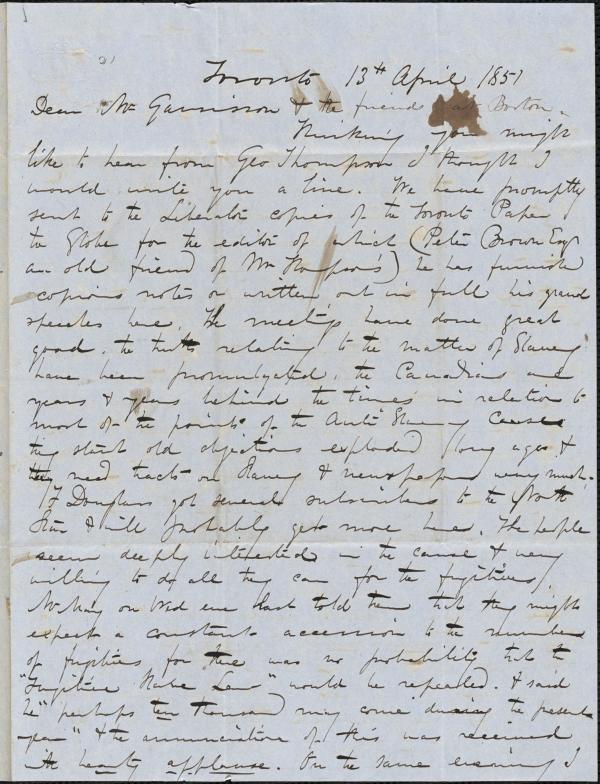 Toronto 13th April 1851
Dear Mr Garrisson & the friends at Boston.
Thinking you might
like to hear from Geo Thompson I thought I
would write you a line. We have promptly
sent to the Liberator copies of the Toronto Paper
the Globe for the editor of which (Peter Brown Esq
an old friend of Mr Thompson's) he has furnish
copious notes or written out in full his grand
speeches here. The meetings have done great
good. the truths relating to the matter of Slavery
have been promulgated. the Canadians are
years & years behind the times in relation to
most of the points of the Anti Slavery Cause
they start old objections exploded long ago &
they need tracts on Slavery & newspapers very much.
F Douglass got several subscribers to the North
Star & will probably get more here. The people
seem deeply interested in the cause & very
willing to do all they can for the fugitives.
Mr May on Wed eve last told them that they might
expect a constant accession to the number
of fugitives for there was no probability that the
"Fugitive Slave Law" would be repealed. & said
he "perhaps ten thousand may come during the present
year" & the annunciation of this was received
with hearty applause. On the same evening I